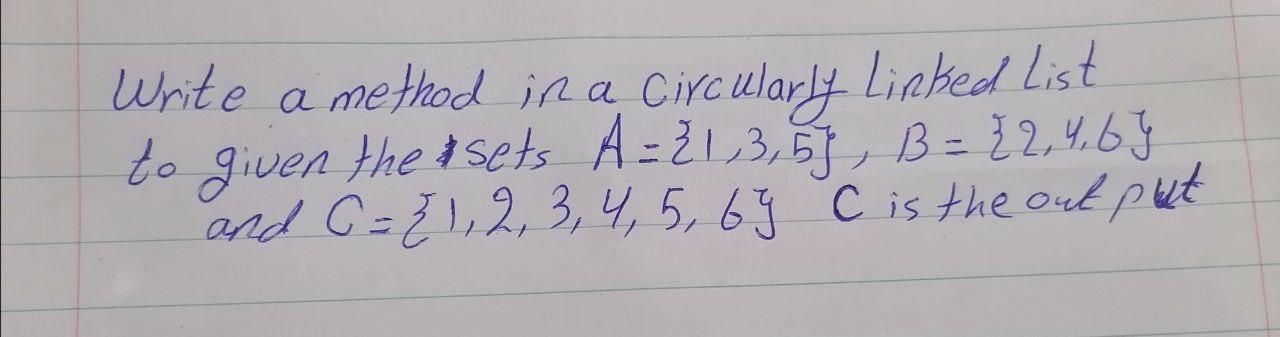 Write a method in a Circularly Linked List
to given the sets A = {1,3,5}, B = {2,4,6}
and C = {1, 2, 3, 4, 5, 6} C is the out put